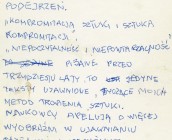 PODEJRZEŃ.
"KOMPROMITACJA SZTUKI I SZTUKA
KOMPROMITACJI",
"NIEPOCZYTALNOŚĆ I NIEPOWTARZALNOŚĆ"
PISANE PRZED
TRZYDZIESTU LATY TO JEDYNE
TEKSTY UJAWNIONE, MOICH
METOD TROPIENIA SZTUKI.
NAUKOWCY APELUJĄ O WIĘCEJ
WYOBRAŹNI W UJAWNIANIU